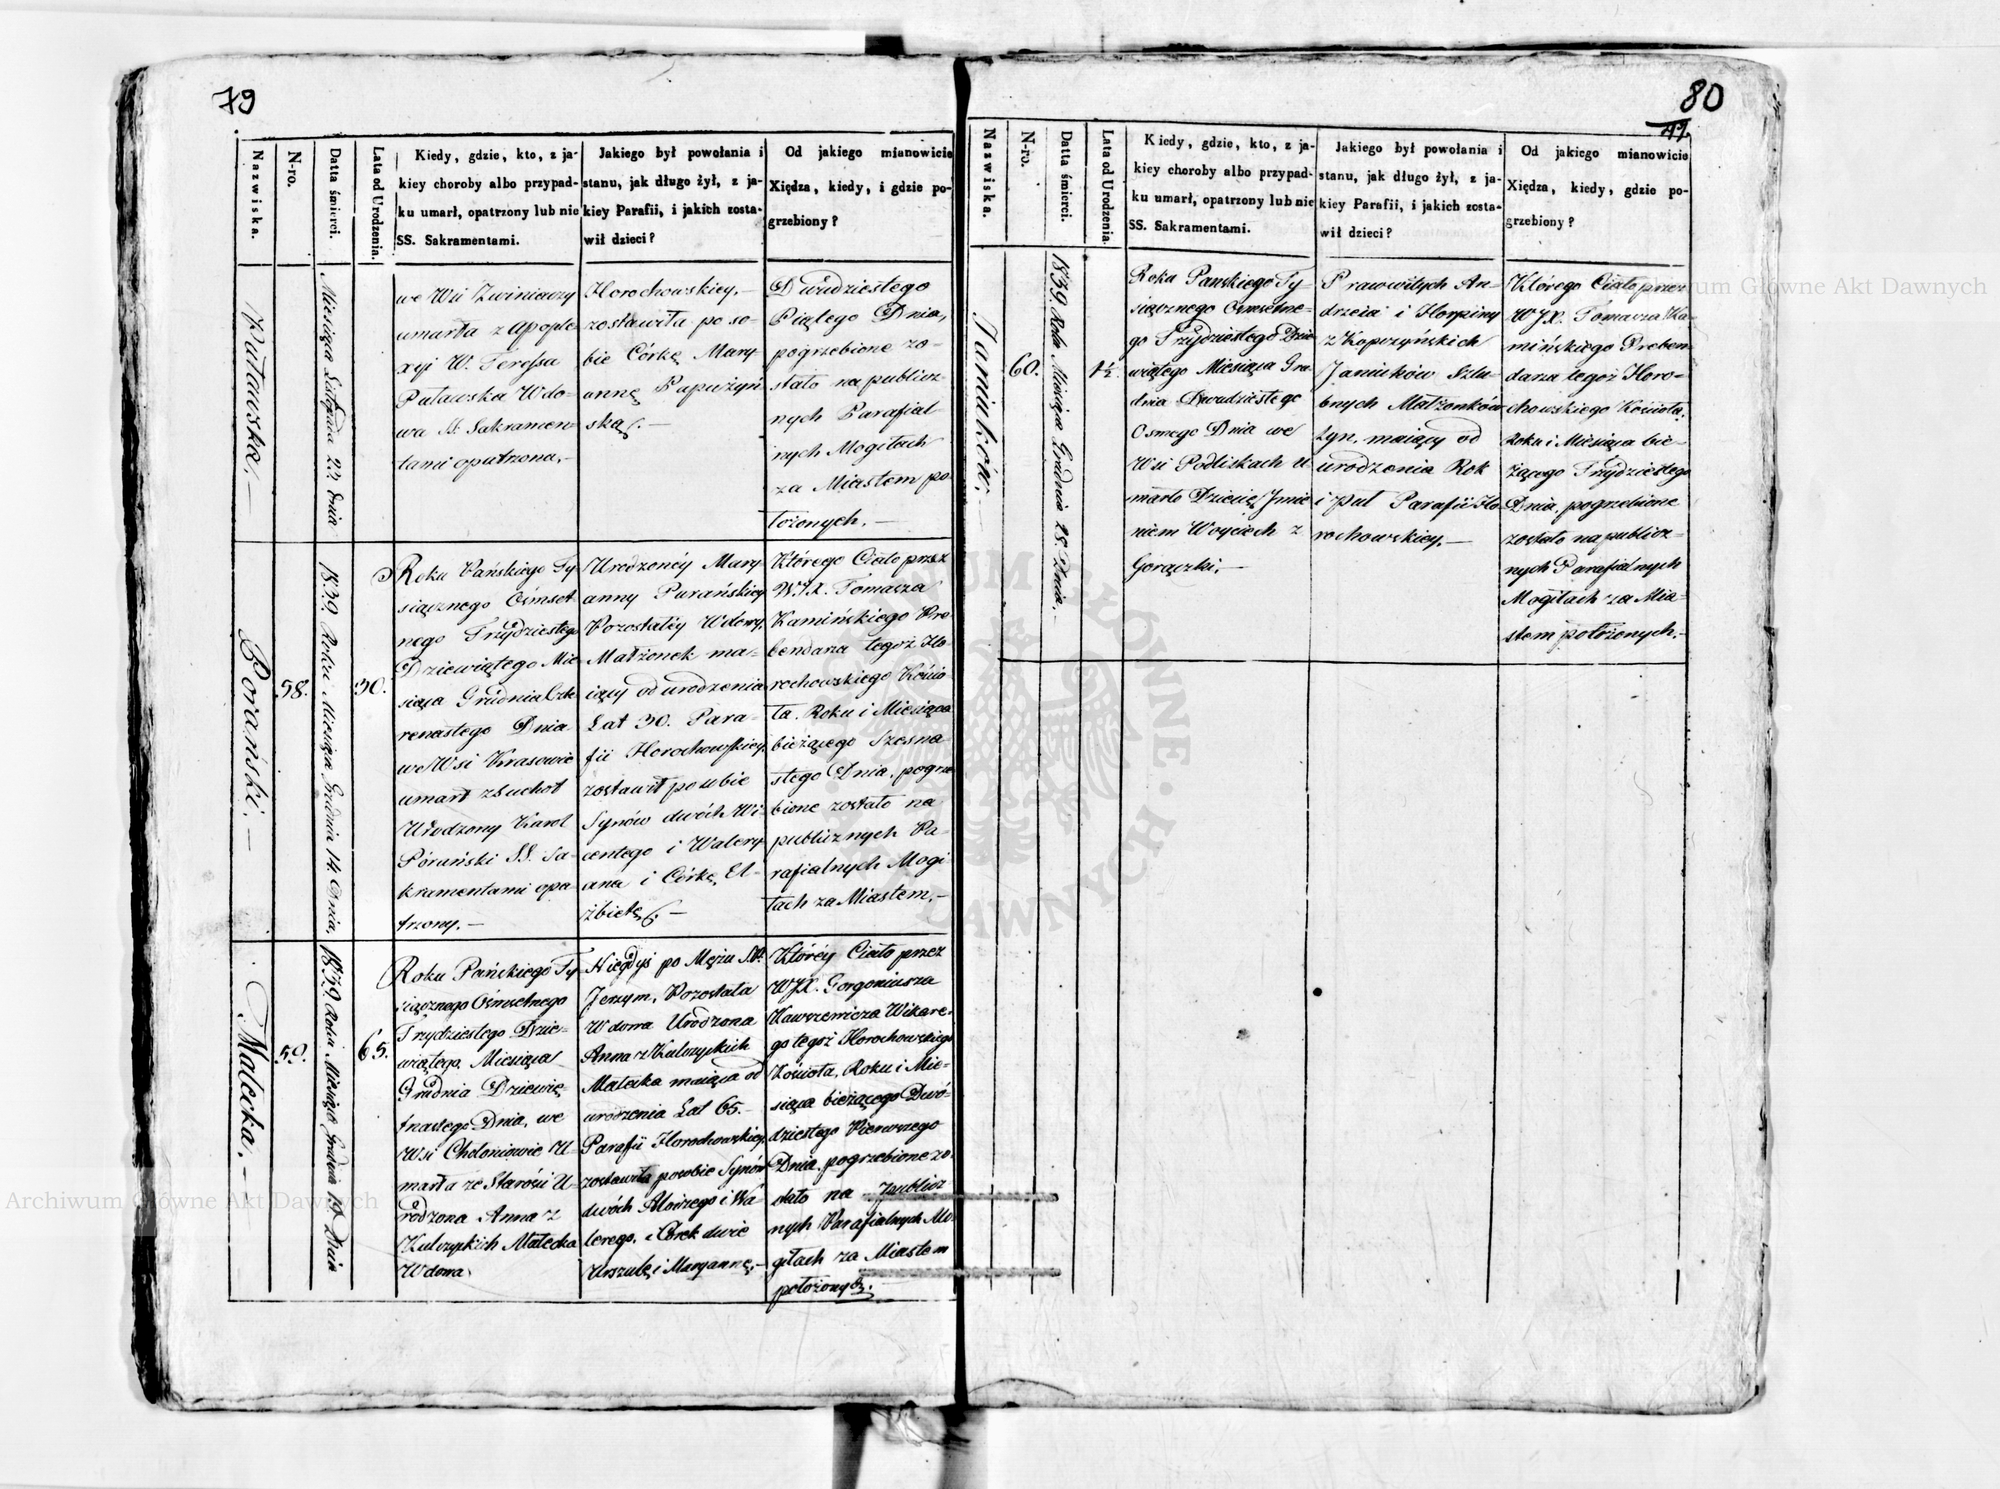 79
Nazwiska.
N-ro.
Datta śmierci.
Lata od Urodzenia.
Kiedy, gdzie, kto, z ja-
kiey choroby albo przypad-
ku umarł, opatrzony lub nie
SS. Sakramentami.
Jakiego był powołania i
stanu, jak długo żył, z ja-
kiey Parafii, i jakich zosta-
wił dzieci?
Od jakiego mianowicie
Xiędza, kiedy, i gdzie po-
grzebiony?
Puławska.—
Miesiąca Listopada 22 dnia
we Wsi Zwiniaczy
umarła z Apople-
xyi W. Teressa
Puławska Wdo-
wa SS. Sakramen-
tami opatrzona.—
Horochowskiey.—
zostawiła po so-
bie Córkę Mary-
annę
ską.—
Dwudziestego
Piątego Dnia,
pogrzebione zo-
stało na publicz-
nych Parafial-
nych Mogiłach
za Miastem po-
łożonych.—
Porański.—
58.
1839. Roku Miesiąca Grudnia 14. Dnia.
30.
Roku Pańskiego Ty-
siącznego Ośmset-
nego Trzydziestego
Dziewiątego Mie-
siąca Grudnia Czte-
renastego Dnia
we Wsi Krasowie
umarł z Suchot
Urodzony Karol
Porański SS. Sa-
kramentami opa-
trzony.—
Urodzonéy Mary-
anny Purańskiey
Pozostałéy Wdowy,
Małżonek ma-
iący od urodzenia
Lat 30. Para-
fii Horochowskiey
zostawił po sobie
Synów dwóch Wi-
centego i Walery-
ana i Córkę, El-
żbietę.—
Którego Ciało przez
WJX. Tomasza
Kamińskiego Pre-
bendarza tegoż Ho-
rochowskiego Kościo-
ła. Roku i Miesiąca
bieżącego Szesna-
stego Dnia, pogrze-
bione zostało na
publicznych Pa-
rafialnych Mogi-
łach za Miastem.—
Malecka.—
59.
1839. Roku Miesiąca Grudnia 19. Dnia
65.
Roku Pańskiego Ty-
siącznego Ośmsetnego
Trzydziestego Dzie-
wiątego, Miesiąca
Grudnia Dziewię-
tnastego Dnia, we
Wsi Choloniowie U-
marła ze Starości U-
rodzona Anna z
Kulczyckich Małecka
Wdowa.
Niegdyś po Mężu S.P.
Jerzym, Pozostała
Wdowa Urodzona
Anna z Kulczyckich
Małecka maiąca od
urodzenia Lat 65.—
Parafii Horochowskiey,
zostawiła po sobie Synów
dwóch Aloizego i Wa-
lerego, i Córek dwie
Urszulę i Maryannę.—
Któréy Ciało przez
WJX. Gorgoniusza
Wikare-
go tegoż Horochowskiego
Kościoła, Roku i Mie-
siąca bieżącego Dwó-
dziestego Pierwszego
Dnia, pogrzebione zo-
stało na publicz-
nych Parafialnych Mo-
giłach za Miastem
położonych.
80
Nazwiska.
N-ro.
Datta śmierci.
Lata od Urodzenia.
Kiedy, gdzie, kto, z ja-
kiey choroby albo przypad-
ku umarł, opatrzony lub nie
SS. Sakramentami.
Jakiego był powołania i
stanu, jak długo żył, z ja-
kiey Parafii, i jakich zosta-
wił dzieci?
Od jakiego mianowicie
Xiędza, kiedy, gdzie po-
grzebiony?
Janiuków.
60.
1839. Roku Miesiąca Grudnia 28. Dnia.
1½
Roku Pańskiego Ty-
siącznego Ośmsetne-
go Trzydziestego Dzie-
wiątego Miesiąca Gru-
dnia Dwudziestego
Osmego Dnia we
Wsi Podliskach U-
marło Dziecię Jmie-
niem Woyciech z
Gorączki.—
Prawowitych An-
drzeia i Horpiny
z Kopczyńskich
Janiuków Szlu-
bnych Małżonków
Syn, maiący od
urodzenia Rok
i Puł Parafii Ho-
rochowskiey.—
Którego Ciało przez
WJX. Tomasza Ka-
mińskiego Preben-
darza tegoż Horo-
chowskiego Kościoła.
Roku i Miesiąca bie-
żącego Trzydziestego
Dnia, pogrzebione
zostało na publicz-
nych Parafialnych
Mogiłach za Mia-
stem położonych.—
Archiwum Główne Akt Dawnych
ARCHIWUM GŁÓWNE AKT DAWNYCH